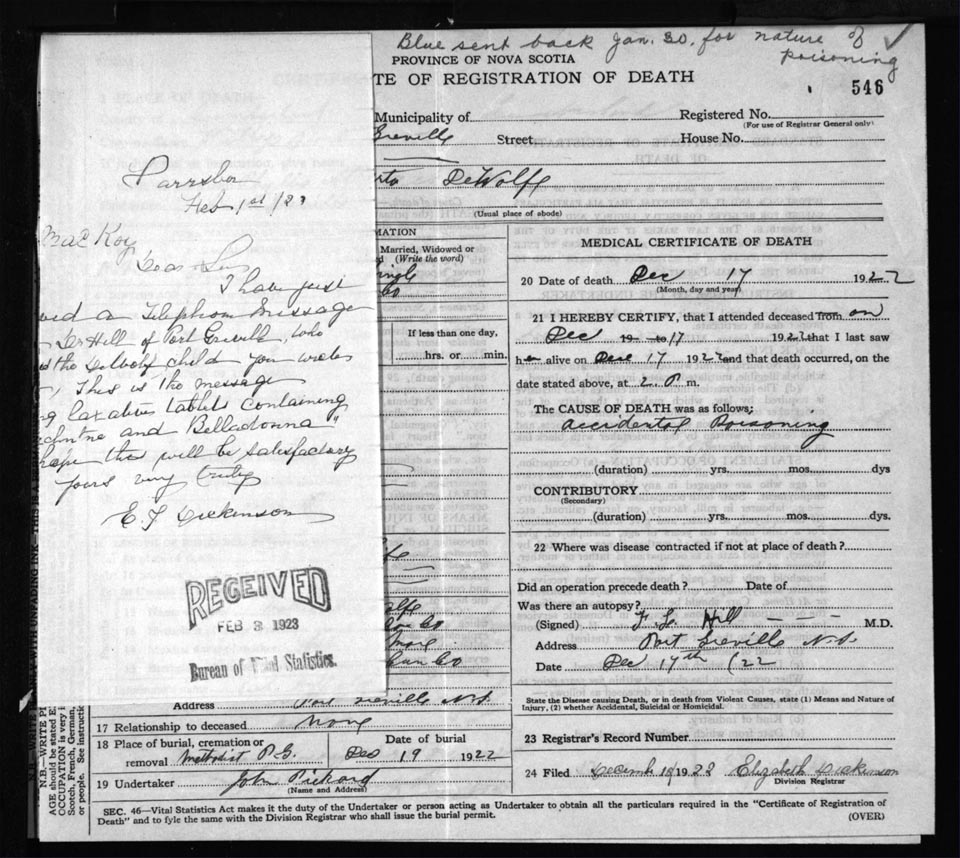 Blue sent back Jan. 30. for nature of
poisoning
PROVINCE OF NOVA SCOTIA
TE OF REGISTRATION OF DEATH
546
Municipality of
Registered No.
(For use of Registrar General only)
Greville
Street
House No.
DeWolfe
(Usual place of abode)
Parrsboro
Feb 1st /23
MacKay
Dear Sir
I have just
ved a telephone message
Dr Hill of Port Greville, who
the DeWolfe child you wrote
This is the message
laxative tablets containing
and Belladonna"
hope this will be satisfactory
yours very truly
E. F. Dickinson
RECEIVED
FEB 3 1923
Bureau of Vital Statistics.
MATION
Married, Widowed or
d (Write the word)
ingle
Co
If less than one day,
hrs. or min.
MEDICAL CERTIFICATE OF DEATH
20 Date of death Dec 17 1922
(Month, day and year)
21 I HEREBY CERTIFY, that I attended deceased from on
Dec 17 1922 that I last saw
h alive on Dec 17 1922 and that death occurred, on the
date stated above, at 2 P. m.
The CAUSE OF DEATH was as follows:
Accidental Poisoning
(duration) yrs. mos. dys
CONTRIBUTORY
(Secondary)
(duration) yrs. mos. dys.
22 Where was disease contracted if not at place of death?
Did an operation precede death? Date of
Was there an autopsy?
(Signed) F. L. Hill M.D.
Address Port Greville N.S.
Date Dec 17th /22
State the Disease causing Death, or in death from Violent Causes, state (1) Means and Nature of
Injury, (2) whether Accidental, Suicidal or Homicidal.
23 Registrar's Record Number
24 Filed December 18 1922 Elizabeth Dickinson
Division Registrar
Address Port Greville N.S.
17 Relationship to deceased None
18 Place of burial, cremation or
removal Methodist P.G.
Date of burial
Dec 19 1922
19 Undertaker John Pickard
(Name and Address)
SEC. 46—Vital Statistics Act makes it the duty of the Undertaker or person acting as Undertaker to obtain all the particulars required in the "Certificate of Registration of
Death" and to fyle the same with the Division Registrar who shall issue the burial permit.
(OVER)
N.B.—WRITE PL
AGE should be stated E
OCCUPATION is very i
Scotch, French, German,
or people. See instructio